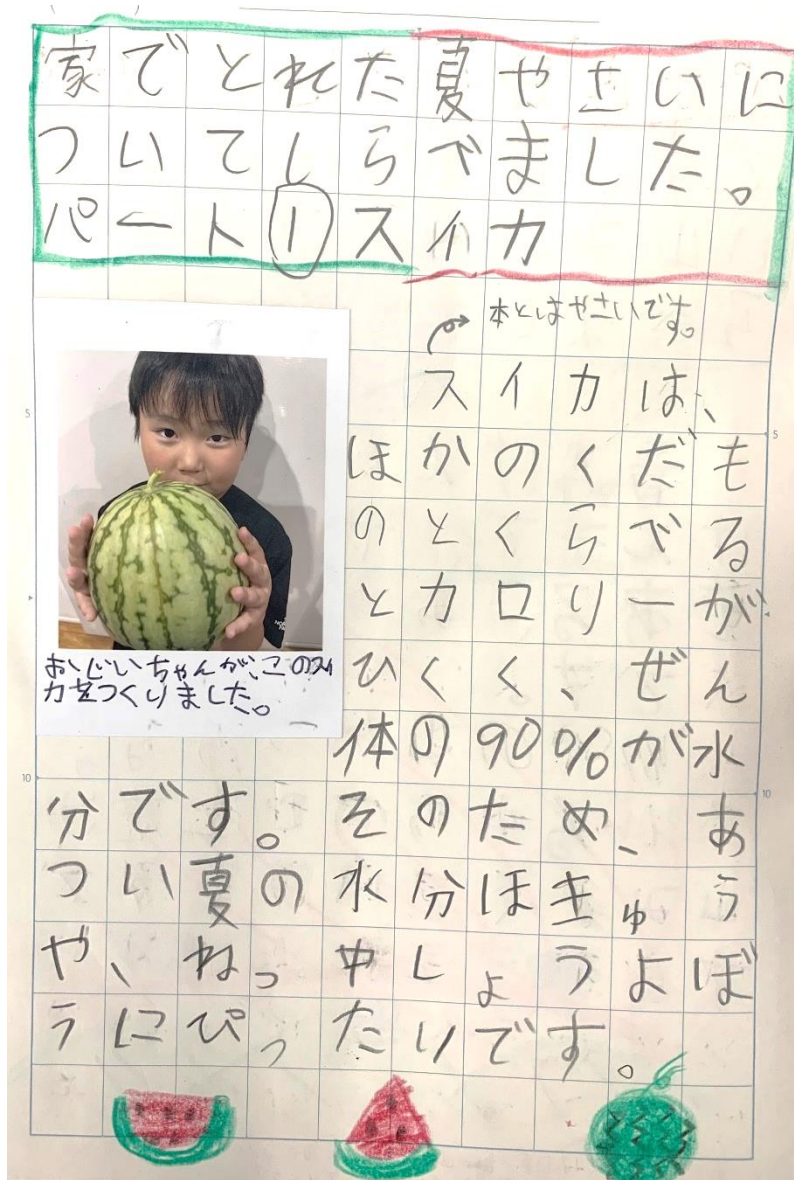 家でとれた夏やさいに
ついてしらべました。
パート①スイカ
本とはやさいです。
スイカは、
ほかのくだも
のとくらべる
とカロリーが
ひくく、ぜん
体の90%が水
分です。そのため、あ
つい夏の水分ほきゅう
や、ねっ中しょうよぼ
うにぴったりです。
おじいちゃんが、このスイ
カをつくりました。
5
5
10
10